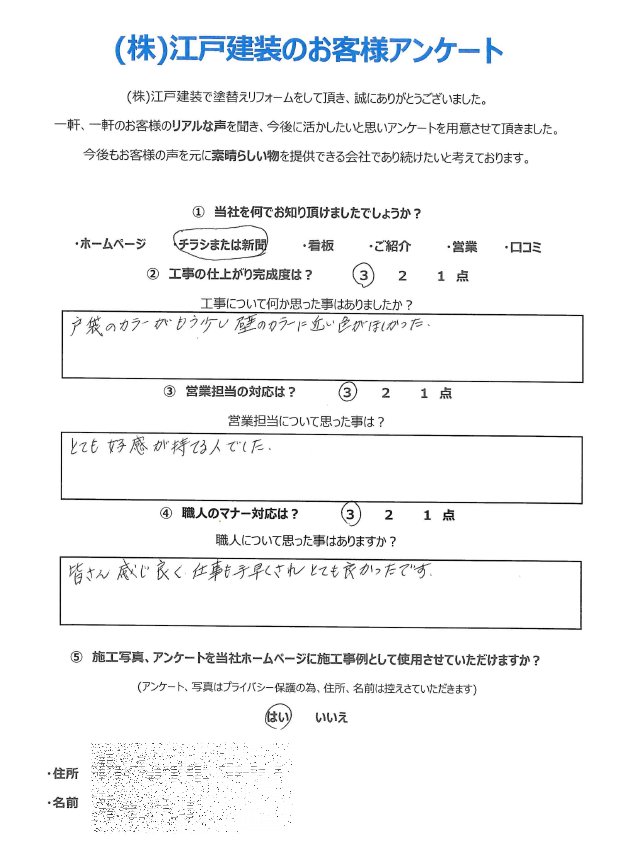 (株)江戸建装のお客様アンケート
(株)江戸建装で塗替えリフォームをして頂き、誠にありがとうございました。
一軒、一軒のお客様のリアルな声を聞き、今後に活かしたいと思いアンケートを用意させて頂きました。
今後もお客様の声を元に素晴らしい物を提供できる会社であり続けたいと考えております。
① 当社を何でお知り頂けましたでしょうか？
・ホームページ ・チラシまたは新聞 ・看板 ・ご紹介 ・営業 ・口コミ
② 工事の仕上がり完成度は？ 3 2 1 点
工事について何か思った事はありましたか？
戸袋のカラーがもう少し壁のカラーに近い色がほしかった.
③ 営業担当の対応は？ 3 2 1 点
営業担当について思った事は？
とても好感が持てる人でした.
④ 職人のマナー対応は？ 3 2 1 点
職人について思った事はありますか？
皆さん感じ良く仕事も手早くされとても良かったです.
⑤ 施工写真、アンケートを当社ホームページに施工事例として使用させていただけますか？
(アンケート、写真はプライバシー保護の為、住所、名前は控えさていただきます)
はい いいえ
・住所
・名前